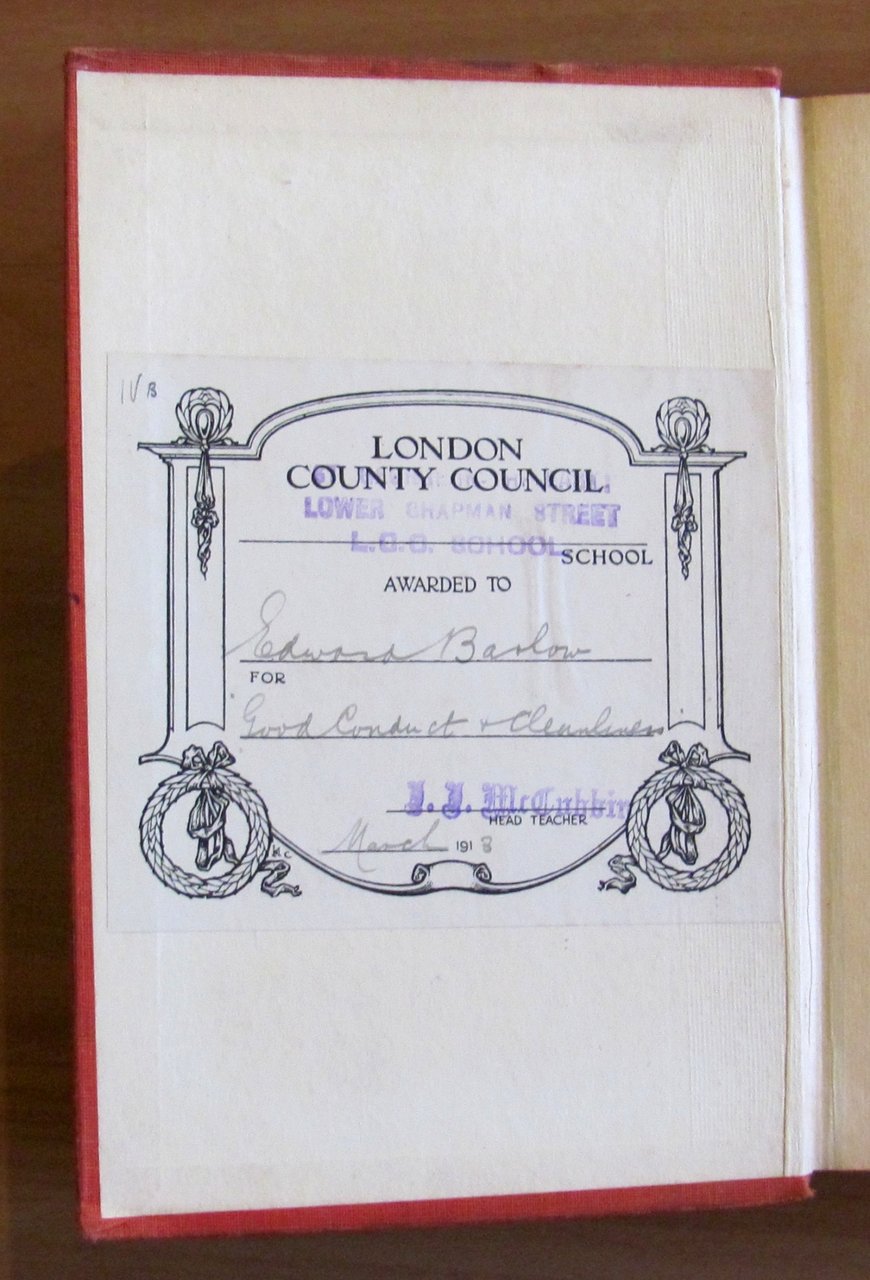 IV B
LONDON
COUNTY COUNCIL
LOWER CHAPMAN STREET
L.C.C. SCHOOL
SCHOOL
AWARDED TO
Edward Barlow
FOR
Good Conduct & Cleanliness
J. J. McCubbin
HEAD TEACHER
March 1918